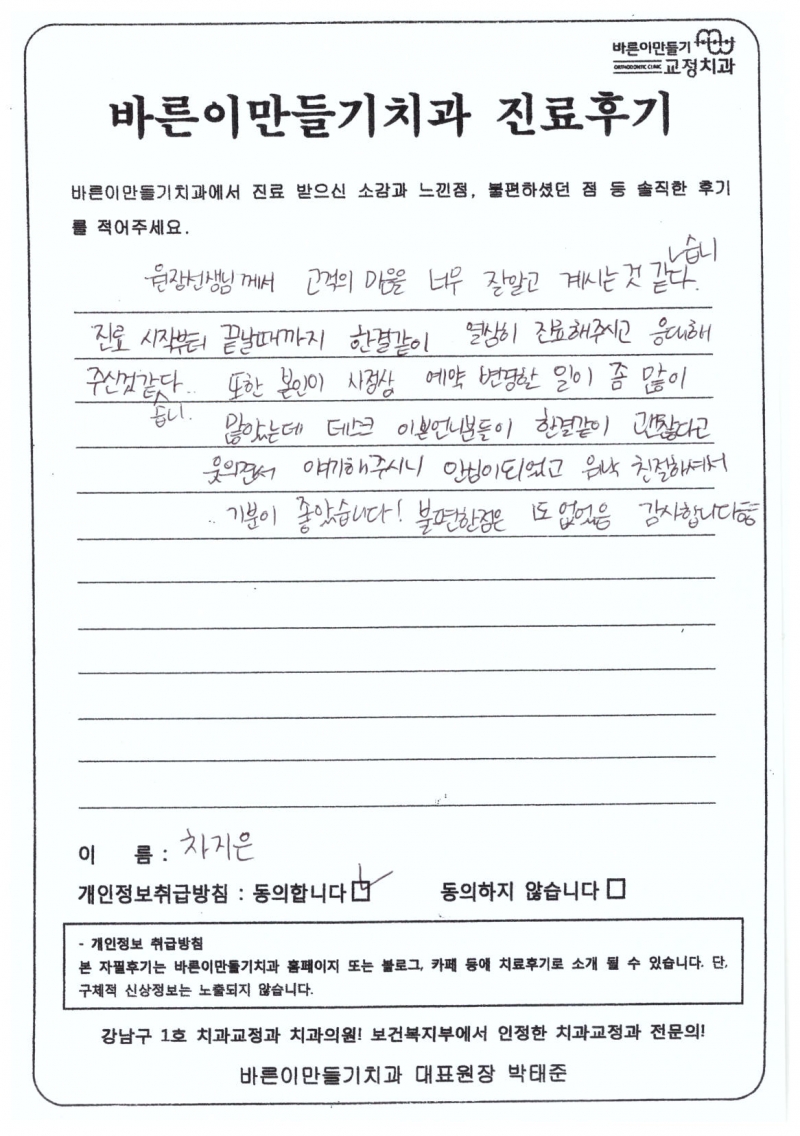 바른이만들기
ORTHODONTIC CLINIC 교정치과
바른이만들기치과 진료후기
바른이만들기치과에서 진료 받으신 소감과 느낀점, 불편하셨던 점 등 솔직한 후기
를 적어주세요.
습니
원장선생님께서 고객의 마음을 너무 잘알고 계시는것 같다.
진료 시작부터 끝날때까지 한결같이 열심히 진료해주시고 응대해
주신것같다.. 또한 본인이 사정상 예약 변경한 일이 좀 많이
습니.
많았는데 데스크 이쁜언니분들이 한결같이 괜찮다고
웃으면서 얘기해주시니 안심이되었고 친절하셔서
.. 기분이 좋았습니다! 불편한점은 1도 없었음 감사합니다
이 름 : 차지은
개인정보취급방침 : 동의합니다 동의하지 않습니다
- 개인정보 취급방침
본 자필후기는 바른이만들기치과 홈페이지 또는 블로그, 카페 등에 치료후기로 소개 될 수 있습니다. 단,
구체적 신상정보는 노출되지 않습니다.
강남구 1호 치과교정과 치과의원! 보건복지부에서 인정한 치과교정과 전문의!
바른이만들기치과 대표원장 박태준